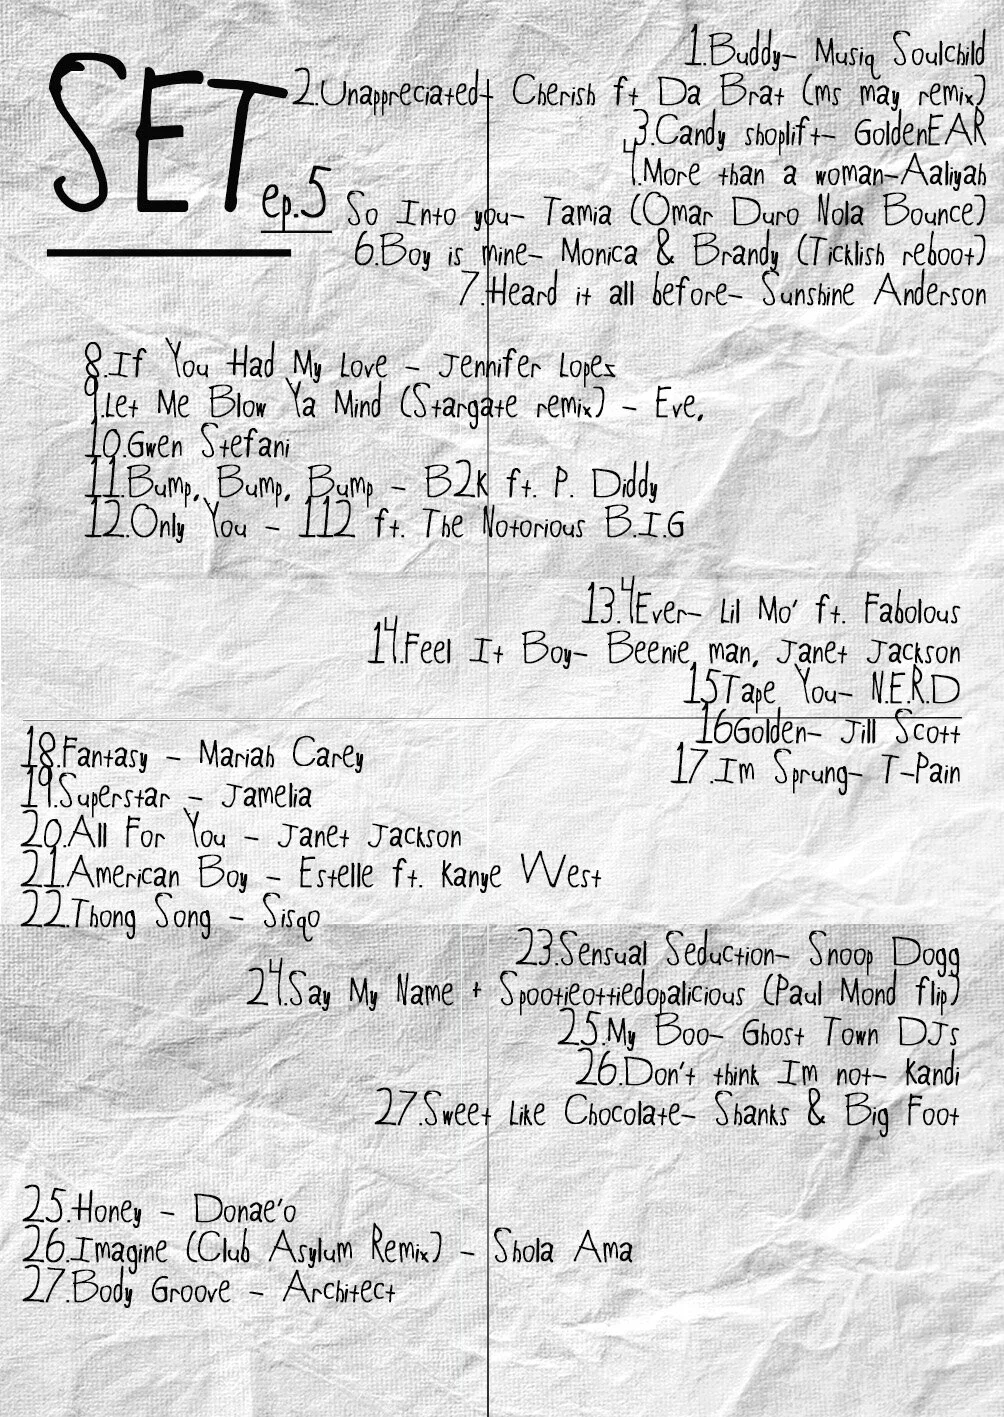 SET
ep.5
1.Buddy- Musiq Soulchild
2.Unappreciated- Cherish ft Da Brat (ms may remix)
3.Candy shoplift- GoldenEAR
4.More than a woman-Aaliyah
So Into you- Tamia (Omar Duro Nola Bounce)
6.Boy is mine- Monica & Brandy (Ticklish reboot)
7.Heard it all before- Sunshine Anderson
8.If You Had My Love - Jennifer Lopez
9.Let Me Blow Ya Mind (Stargate remix) - Eve,
10.Gwen Stefani
11.Bump, Bump, Bump - B2K ft. P. Diddy
12.Only You - 112 ft. The Notorious B.I.G
13.4Ever- Lil Mo' ft. Fabolous
14.Feel It Boy- Beenie man, Janet Jackson
15Tape You- N.E.R.D
16Golden- Jill Scott
17.Im Sprung- T-Pain
18.Fantasy - Mariah Carey
19.Superstar - Jamelia
20.All For You - Janet Jackson
21.American Boy - Estelle ft. Kanye West
22.Thong Song - Sisqo
23.Sensual Seduction- Snoop Dogg
24.Say My Name + Spootieottiedopalicious (Paul Mond flip)
25.My Boo- Ghost Town DJs
26.Don't think Im not- Kandi
27.Sweet Like Chocolate- Shanks & Big Foot
25.Honey - Donae'o
26.Imagine (Club Asylum Remix) - Shola Ama
27.Body Groove - Architect